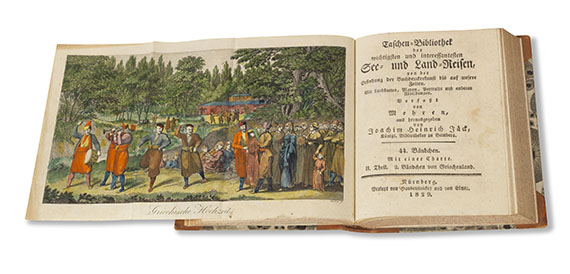 Griechische Hochzeit.
Taschen-Bibliothek
der
wichtigsten und interessantesten
See- und Land-Reisen,
von der
Erfindung der Buchdruckerkunst bis auf unsere
Zeiten.
Mit Landkarten, Planen, Portraits und anderen
Abbildungen.
Verfaßt
von
Mehren,
und herausgegeben
von
Joachim Heinrich Jäck,
Königl. Bibliothekar zu Bamberg.
44. Bändchen.
Mit einer Charte.
II. Theil. 2. Bändchen von Griechenland.
Nürnberg.
Verlegt von Haubenstricker und von Ebner.
1829